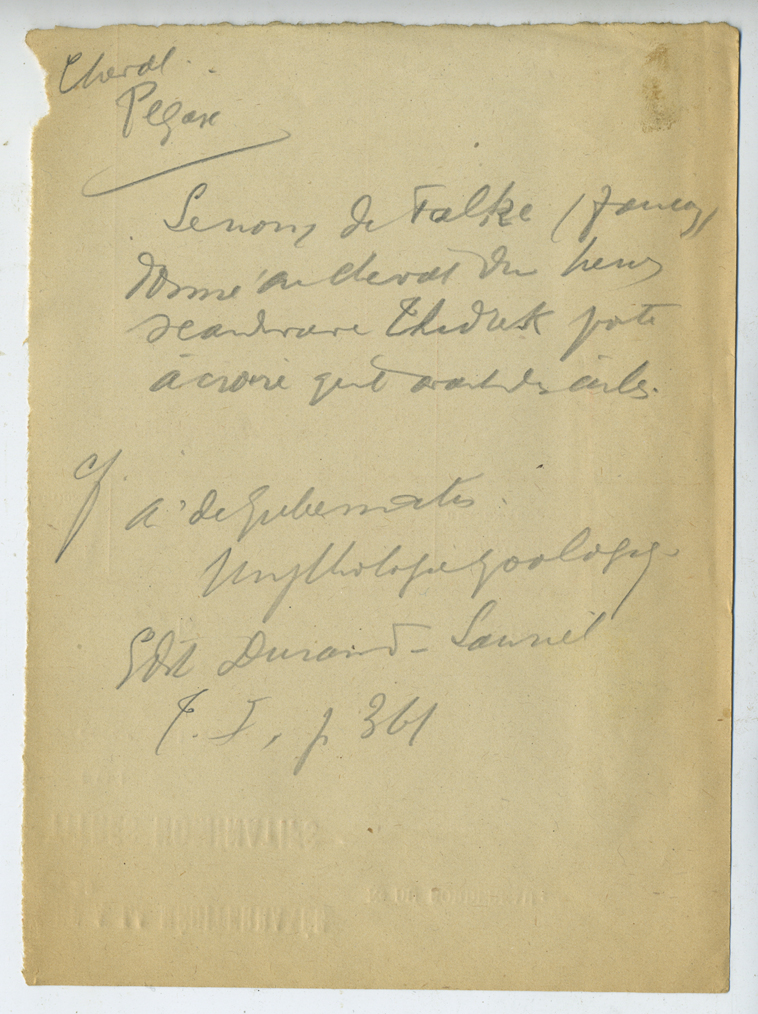 Cheval.
Pégase
Le nom de Falke (faucon)
donné au cheval du heros
scandinave Thidrek porte
à croire qu'il avait des ailes.
cf A. de Gubernatis.
Mythologie zoologiq.
Edit Durand - Lauriel
T. I, p 361